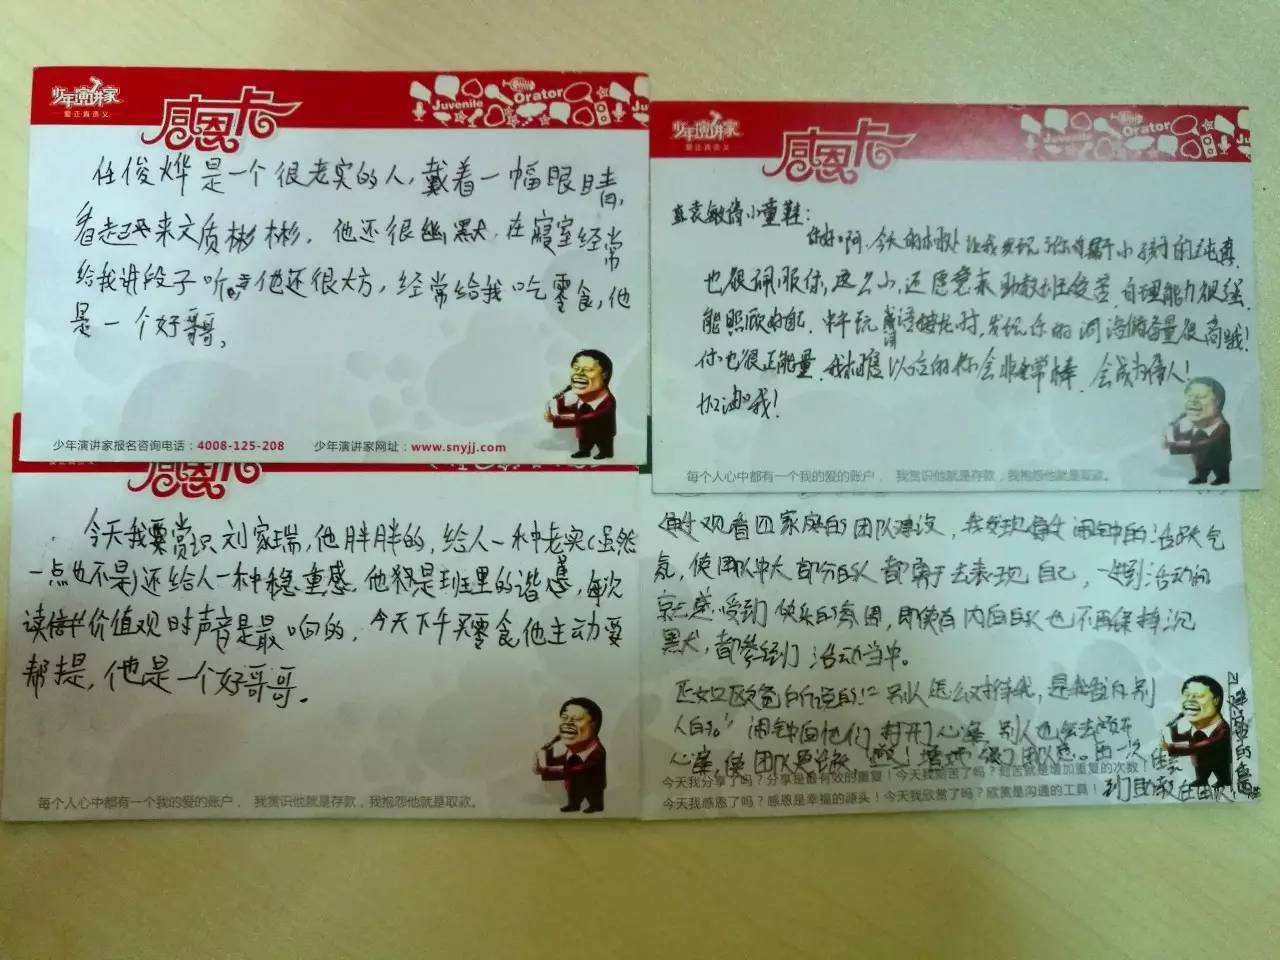 少年演讲家
爱·正直·责义
感恩卡
Juvenile
Orator
任俊烨是一个很老实的人,戴着一幅眼睛,
看起来文质彬彬,他还很幽默,在寝室经常
给我讲段子听,他还很大方,经常给我吃零食,他
是一个好哥哥,
少年演讲家报名咨询电话:4008-125-208 少年演讲家网址:www.snyjj.com
少年演讲家
感恩卡
Juvenile
Orator
袁敏 小童鞋:
你好啊,今天的 让我发现了你 小孩子的纯真,
也很佩服你,这么小,还愿意来 自理能力很强,
能照顾好自己,中午玩成语接龙时,发现你的词语储备量很高哦!
你也很正能量,我相信以后的你会非常棒,会成为伟人!
加油哦!
每个人心中都有一个我的爱的账户, 我赏识他就是存款,我抱怨他就是取款。
感恩卡
今天我要赏识刘家瑞,他胖胖的,给人一种老实(虽然
一点也不是)还给人一种稳重感,他还是班里的谐 ,每次
读 价值观时声音是最响的,今天下午买零食他主动要
帮提,他是一个好哥哥。
每个人心中都有一个我的爱的账户, 我赏识他就是存款,我抱怨他就是取款。
观看四家庭的团队建设,我发现 闹钟的活跃气
氛,使团队中大部分的人都勇于去表现自己,
感受到快乐的氛围,即使有内向的人也不再保持沉
默,都参与到了活动当中。
正如 所说的:"别人怎么对待我,是我 别
人的。"闹钟的他们打开了心扉,别人也会去敞开
心扉,使团队更 团队感。
今天我分享了吗?分享是最有效的重复!今天我刻苦了吗?刻苦就是增加重复的次数!
今天我感恩了吗?感恩是幸福的源头!今天我欣赏了吗?欣赏是沟通的工具!